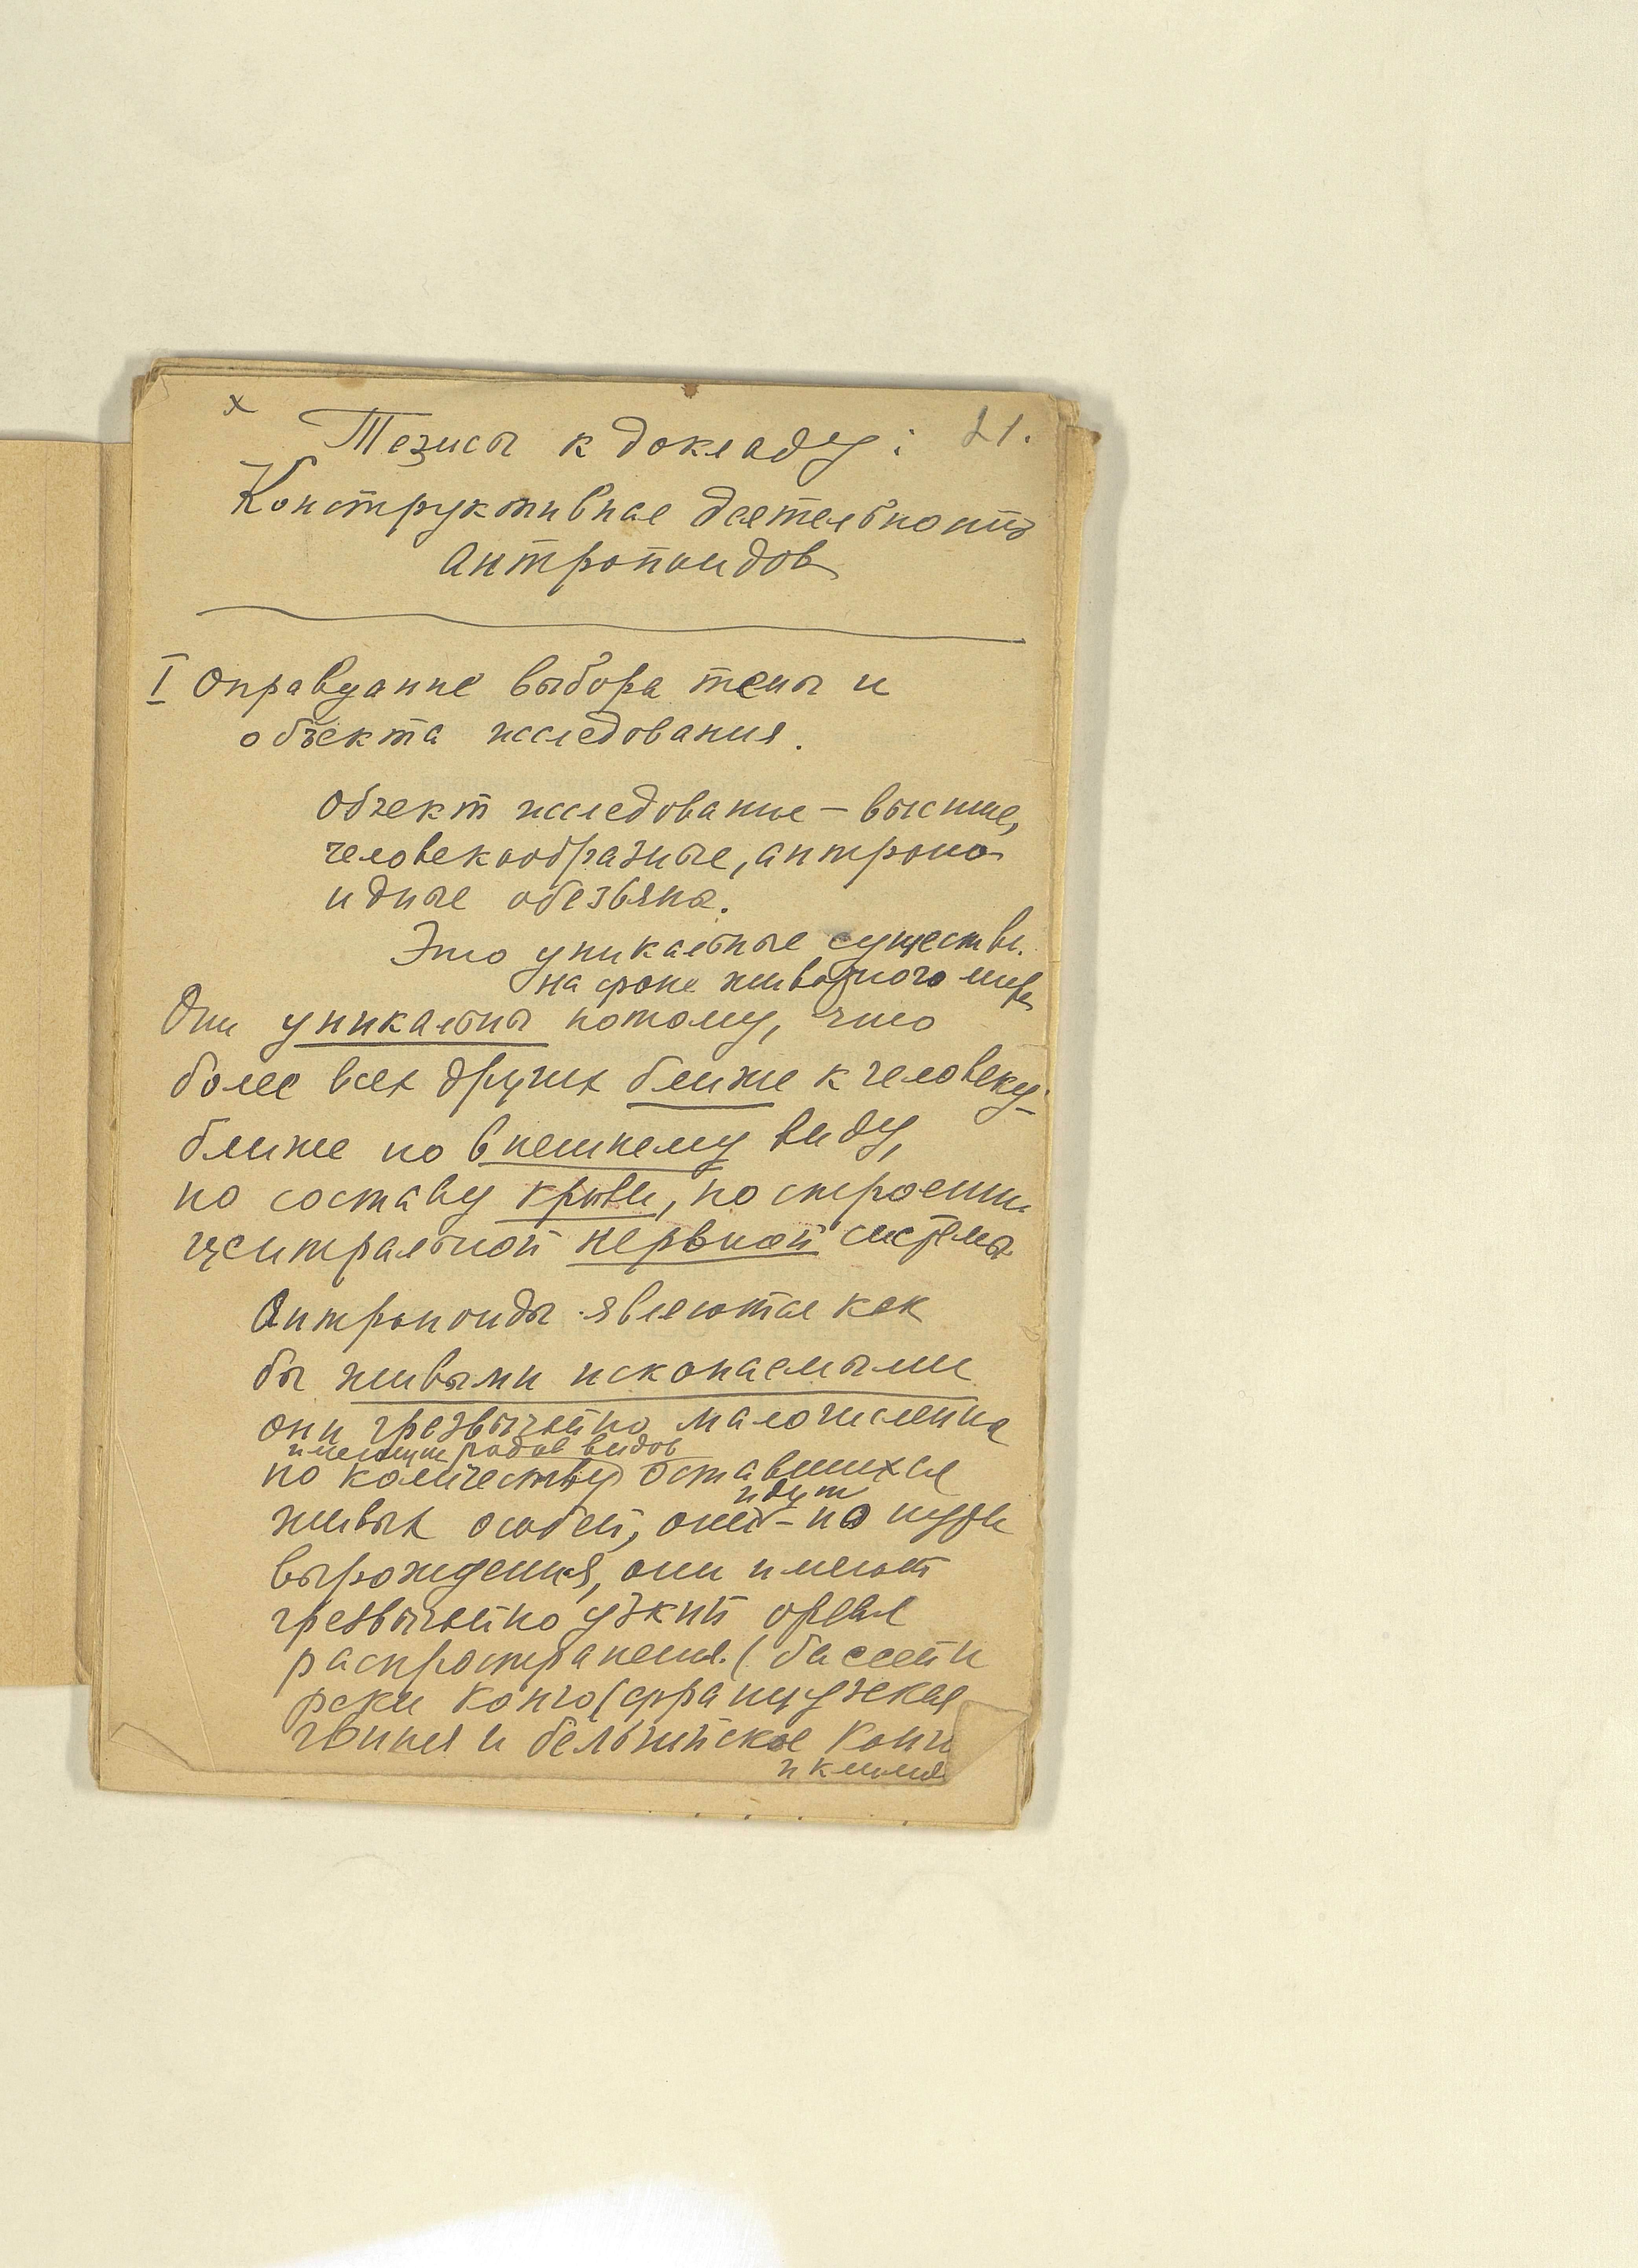 х
Тезисы к докладу: 21.
Конструктивная деятельность
антропоидов
I Оправдание выбора темы и
объекта исследования.
Объект исследования – высшие,
человекообразные, антропо-
идные обезьяны.
Это уникальные существа
на фоне животного мира
Они уникальны потому, что
более всех других ближе к человеку-
ближе по внешнему виду,
по составу крови, по строению
центральной нервной системы
Антропоиды являются как
бы живыми ископаемыми
они чрезвычайно малочисленны
родов видов
по количеству оставшихся
идут
живых особей, они – по пути
вырождения, они имеют
чрезвычайно узкий ореал
распространения (бассейн
реки Конго (французская
Гвинея и бельгийское Конго